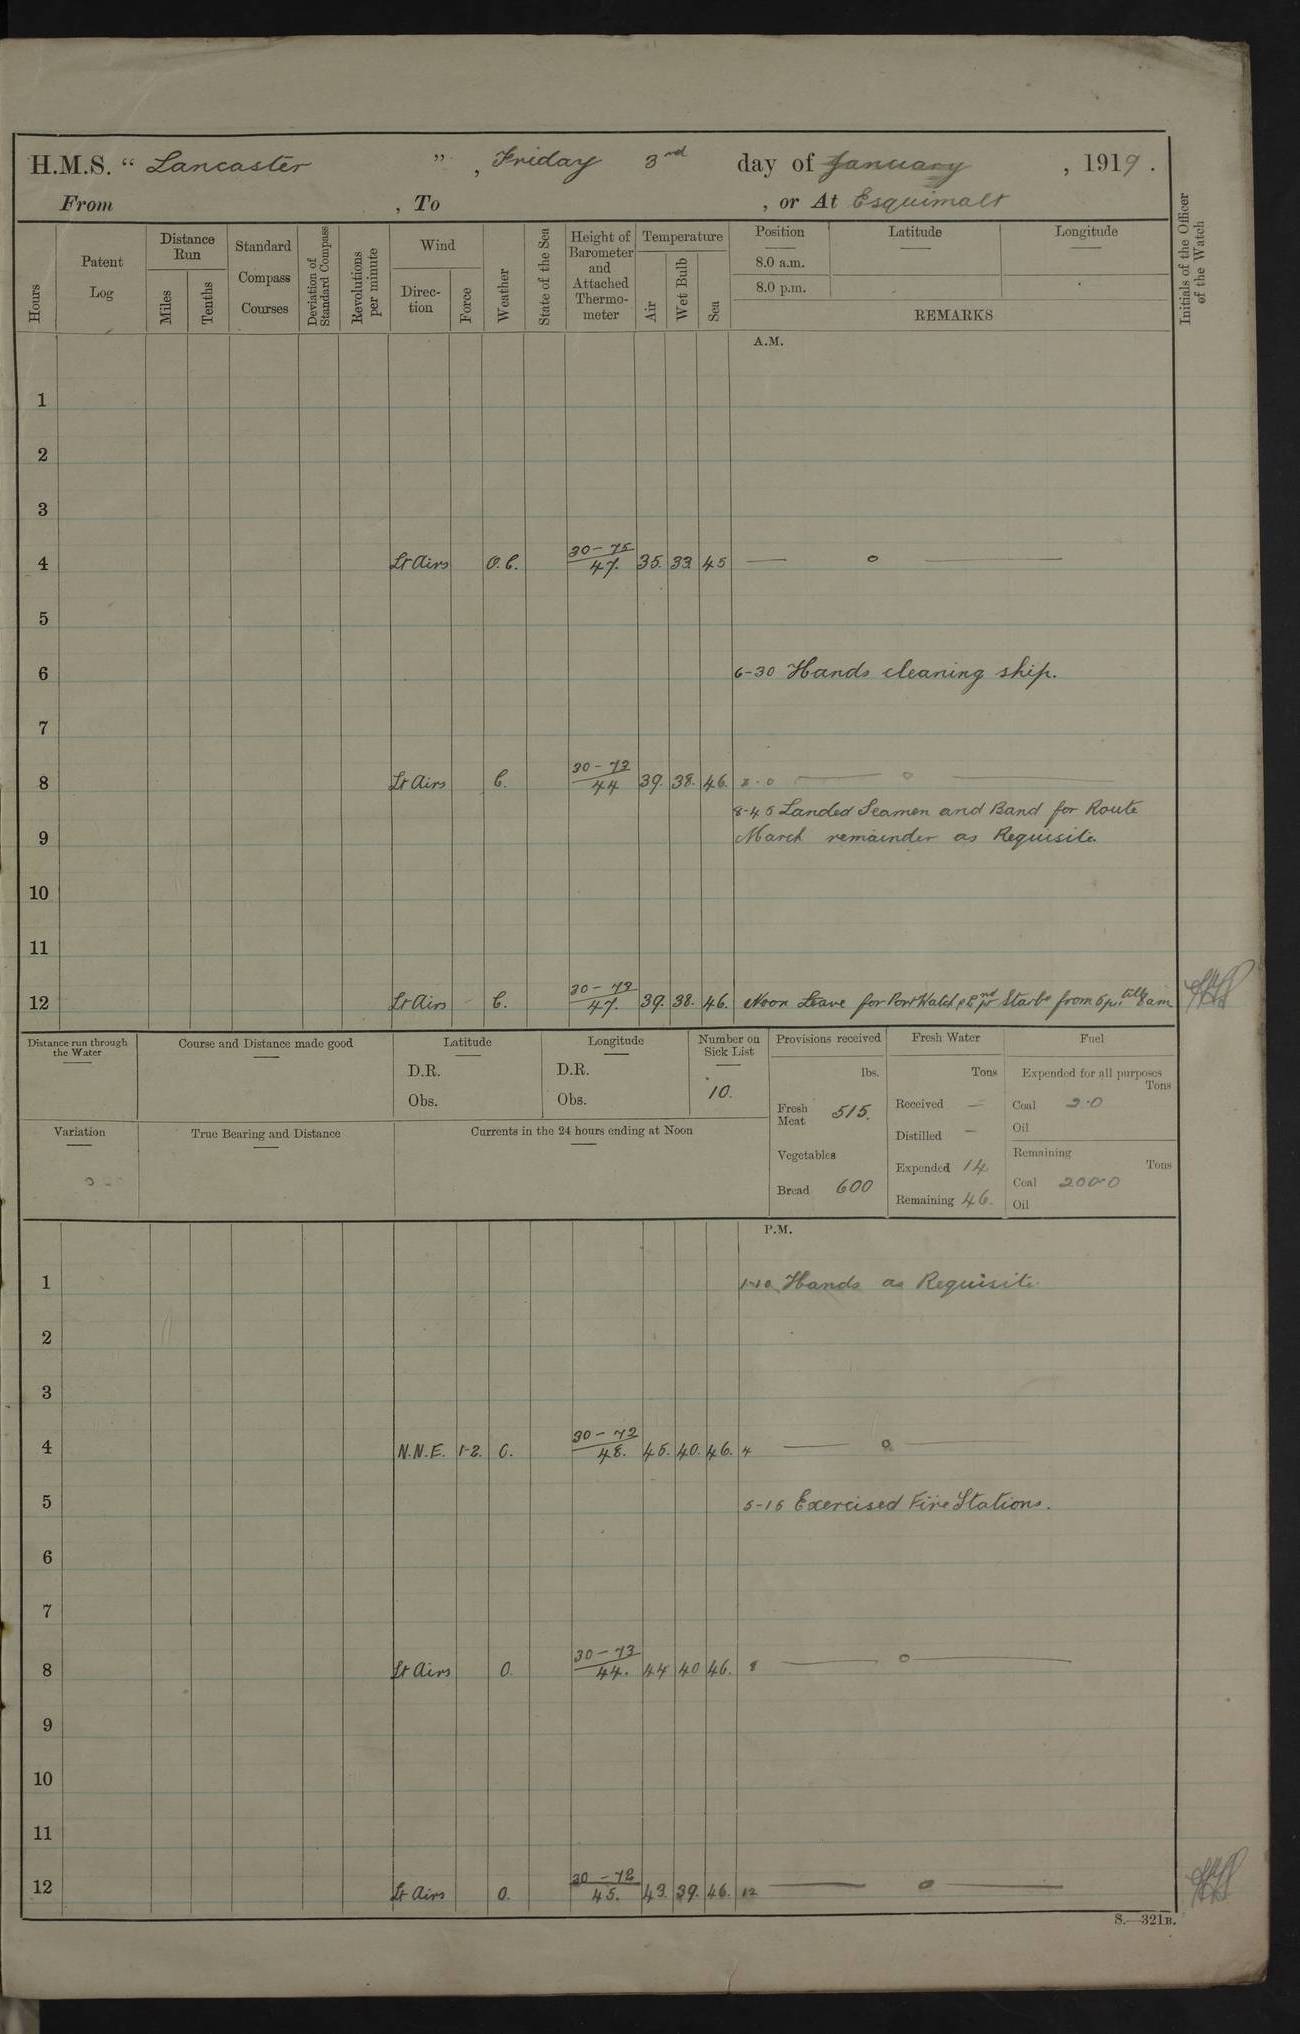 H.M.S. “ Lancaster ”, Friday 3rd day of January, 1919.
From , To , or At Esquimalt
Hours
Patent Log
Distance Run
Miles
Tenths
Standard Compass Courses
Deviation of Standard Compass
Revolutions per minute
Wind
Direction
Force
Weather
State of the Sea
Height of Barometer and Attached Thermometer
Temperature
Air
Wet Bulb
Sea
Position
8.0 a.m.
8.0 p.m.
Latitude
Longitude
REMARKS
Initials of the Officer of the Watch
A.M.
1
2
3
4 Lt Airs O.C. 30-75 47. 35. 33. 45 — o —
5
6 6-30 Hands cleaning ship.
7
8 Lt Airs C. 30-73 44 39. 38. 46. 8.0 — o —
8-45 Landed Seamen and Band for Route
9 March remainder as Requisite.
10
11
12 Lt Airs C. 30-72 47. 39. 38. 46. Noon Leave for Port Watch & 2nd pt Starb from 5pm till 8am
Distance run through the Water
Course and Distance made good
Latitude
D.R.
Obs.
Longitude
D.R.
Obs.
Number on Sick List
10.
Provisions received
lbs.
Fresh Meat 515.
Vegetables
Bread 600
Fresh Water
Tons
Received —
Distilled —
Expended 14
Remaining 46.
Fuel
Expended for all purposes
Tons
Coal 20
Oil
Remaining
Tons
Coal 2000
Oil
Variation
True Bearing and Distance
Currents in the 24 hours ending at Noon
P.M.
1 1-10 Hands as Requisite.
2
3
4 N.N.E. 1-2. C. 30-72 48. 45. 40. 46. 4 — o —
5 5-15 Exercised Fire Stations.
6
7
8 Lt Airs O. 30-73 44. 44 40 46. 8 — o —
9
10
11
12 Lt Airs O. 30-72 45. 43. 39. 46. 12 — o —
S.—321B.